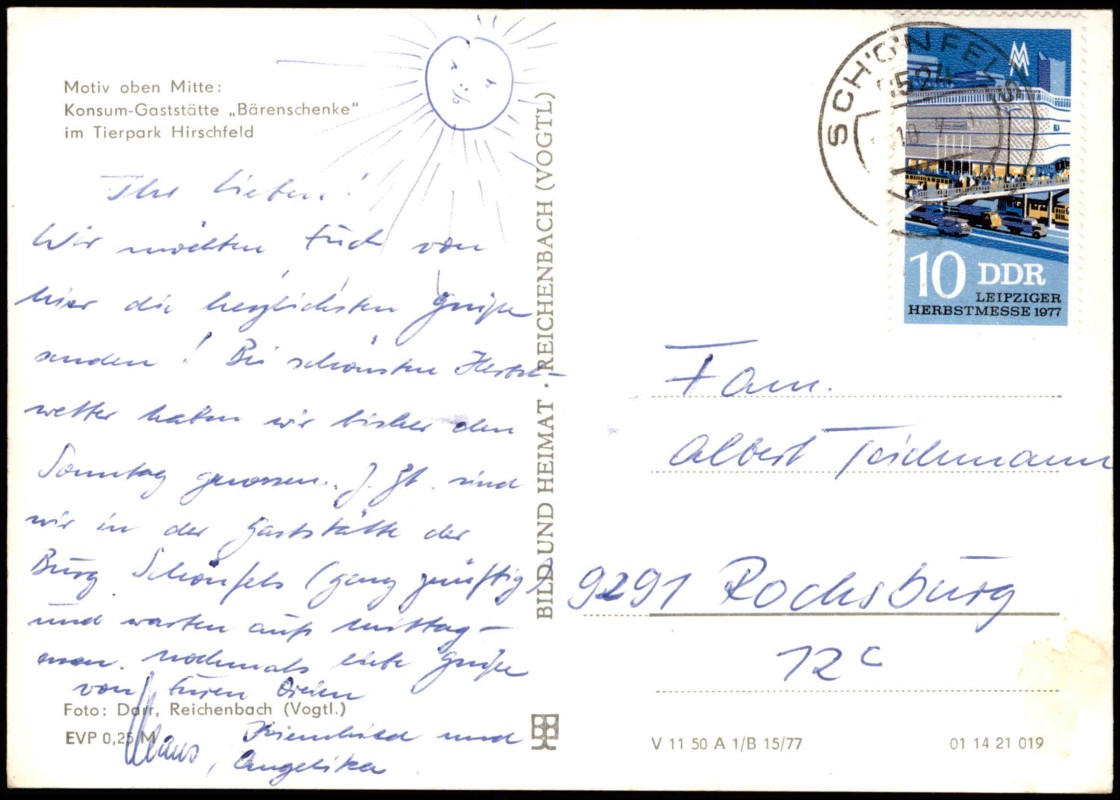 Motiv oben Mitte:
Konsum-Gaststätte „Bärenschenke"
im Tierpark Hirschfeld
Ihr Lieben!
Wir möchten Euch von
hier die herzlichsten Grüße
senden! Bei schönsten Herbst-
wetter haben wir bisher den
Sonntag genossen. Z. Zt. sind
wir in der Gaststätte der
Burg Schönfels (ganz zünftig)
und warten aufs Mittag-
essen. Nochmals liebe Grüße
von Euren Dreien
Foto: Darr, Reichenbach (Vogtl.)
EVP 0,25 M
Klaus, und
Angelika
BILD UND HEIMAT · REICHENBACH (VOGTL)
SCHÖNFELS
10 DDR
LEIPZIGER
HERBSTMESSE 1977
Fam.
Albert Teichmann
9291 Rochsburg
12c
V 11 50 A 1/B 15/77
01 14 21 019